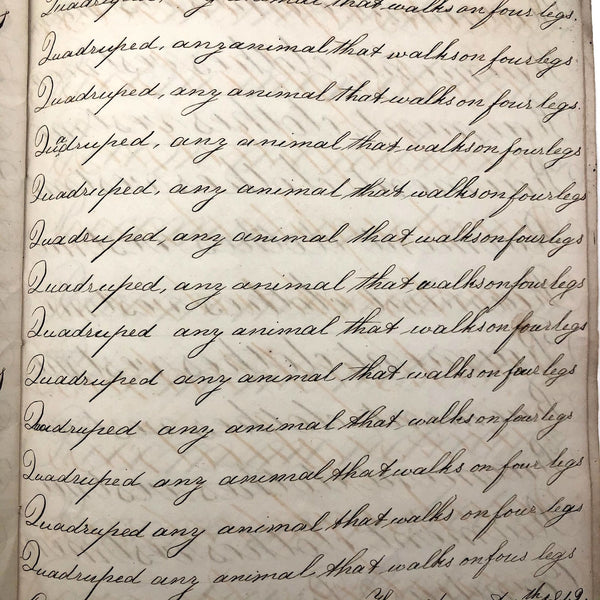 Quadruped, any animal that walks on four legs.
Quadruped, any animal that walks on four legs
Quadruped, any animal that walks on four legs.
Quadruped, any animal that walks on four legs
Quadruped, any animal that walks on four legs
Quadruped, any animal that walks on four legs
Quadruped, any animal that walks on four legs
Quadruped any animal that walks on four legs
Quadruped any animal that walks on four legs
Quadruped any animal that walks on four legs
Quadruped any animal that walks on four legs
Quadruped any animal that walks on four legs
Quadruped any animal that walks on four legs
th 1819